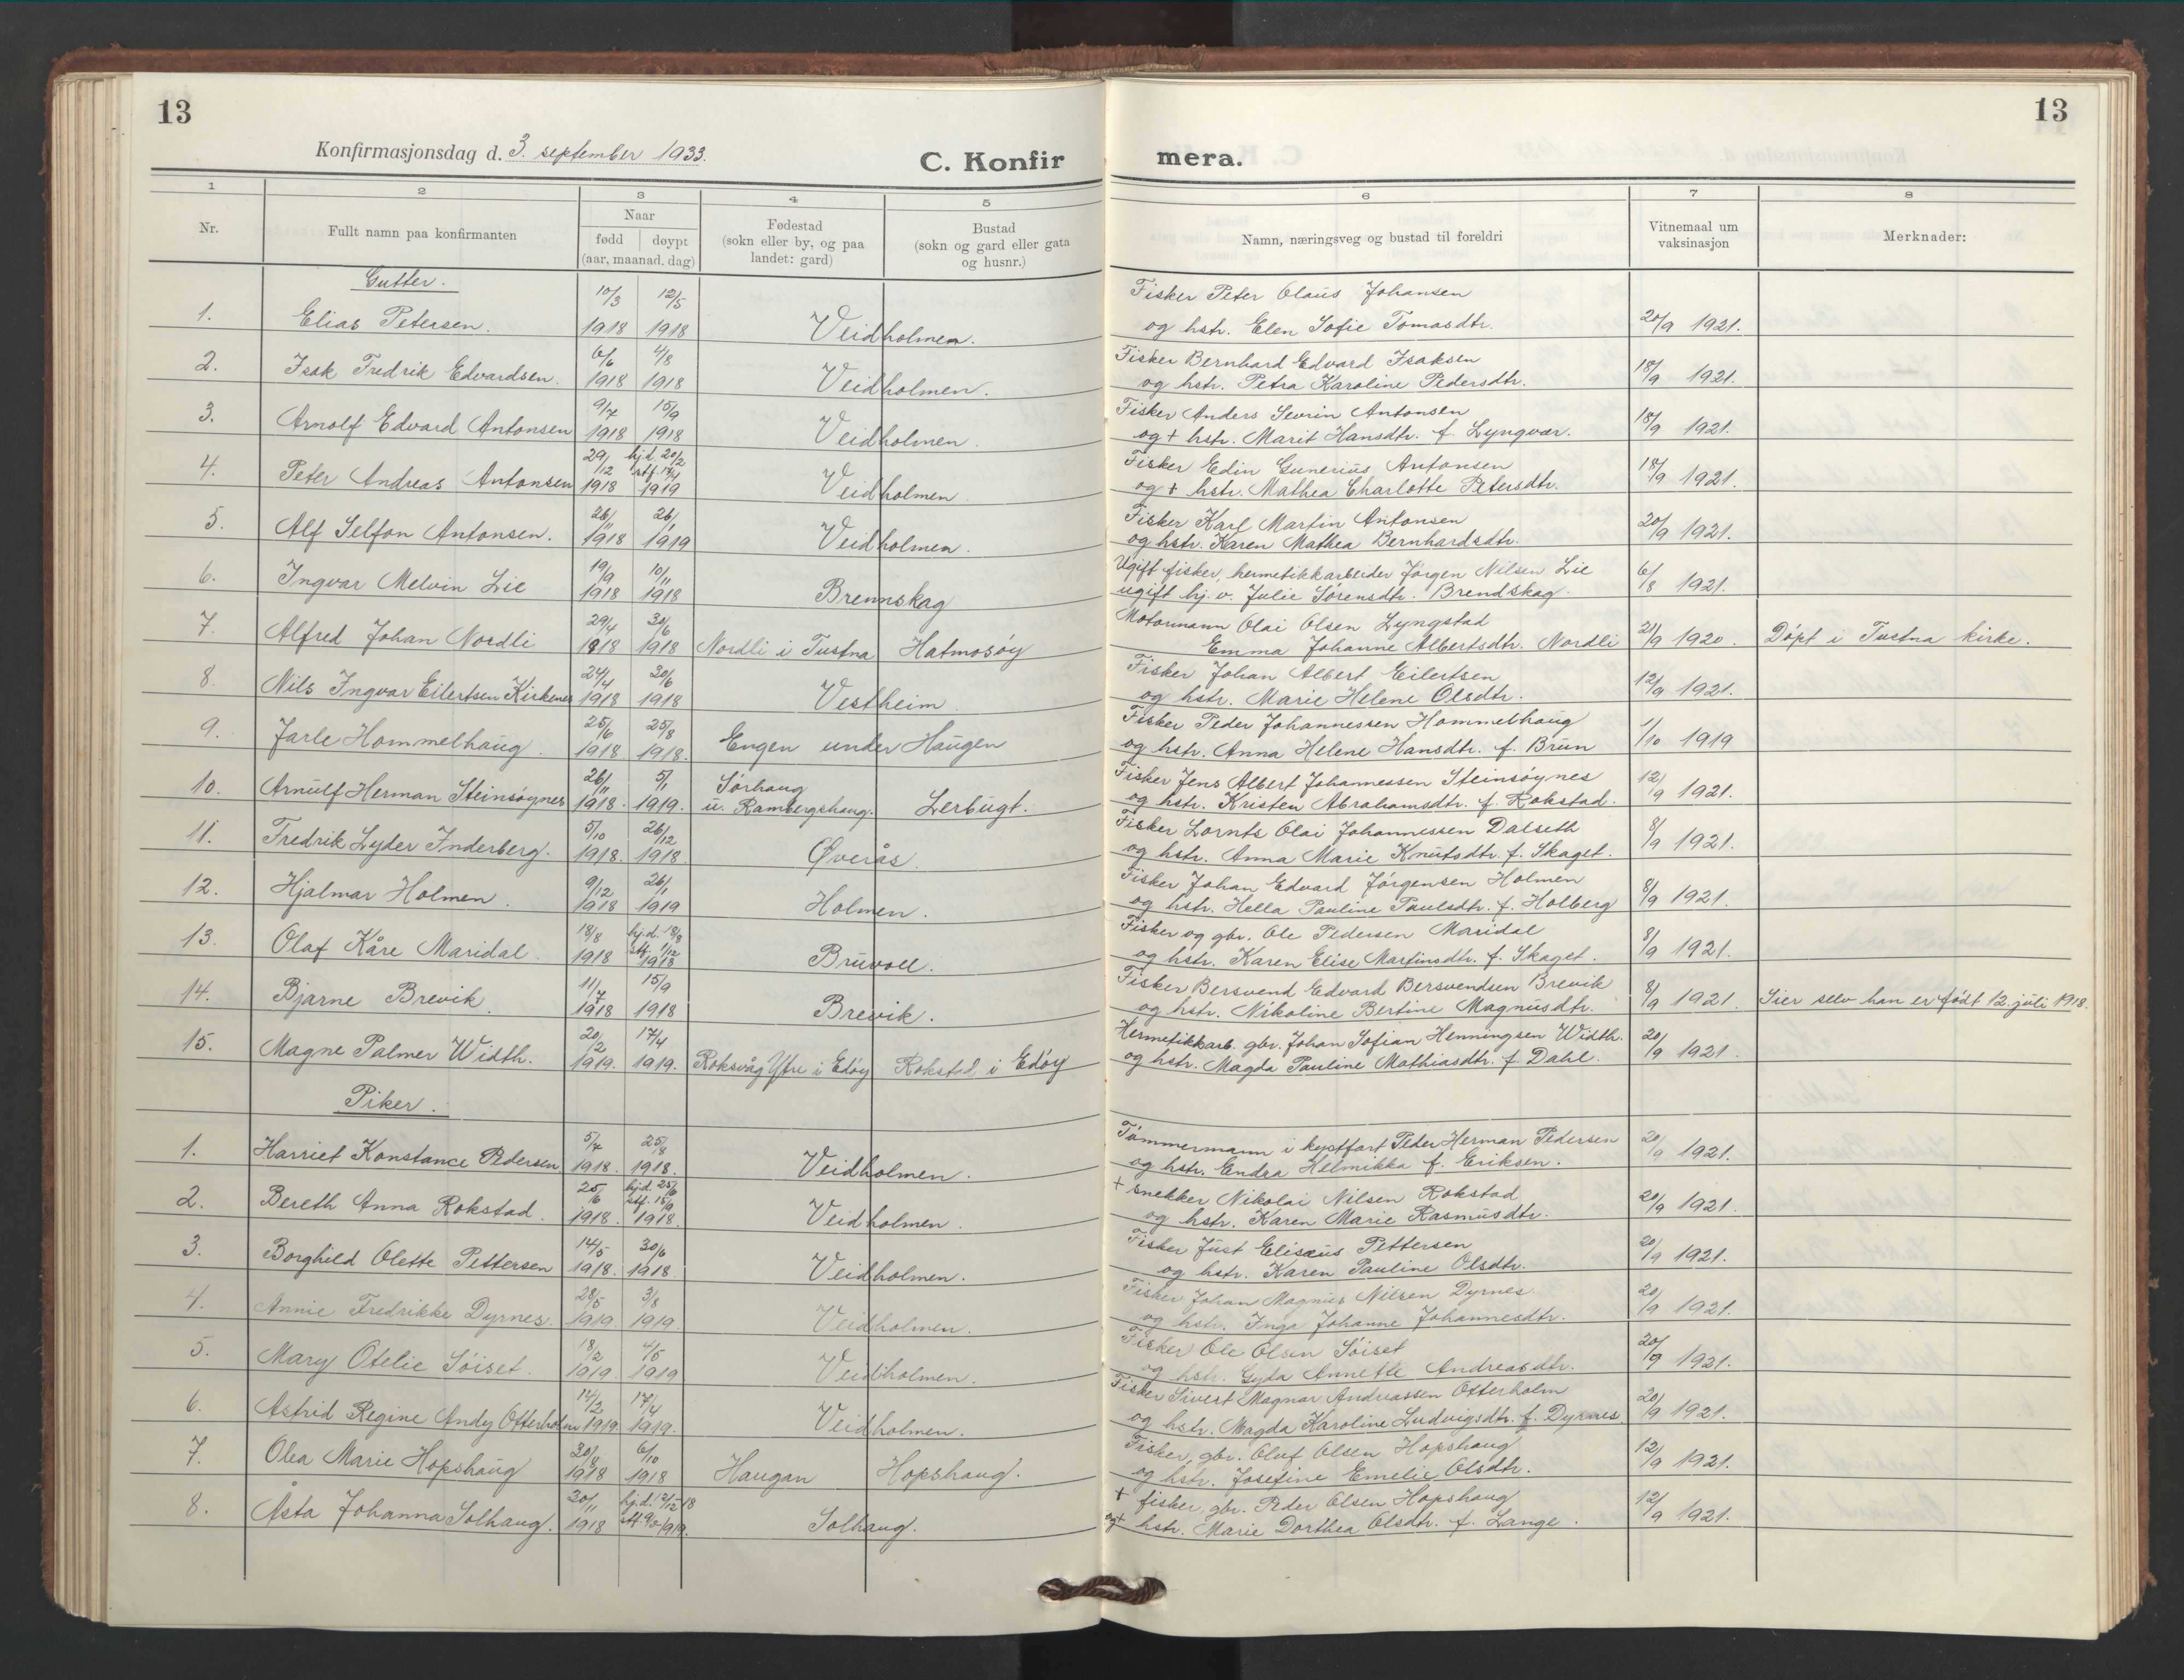 13
13
Konfirmasjonsdag d. 3. september 1933.
C. Konfir mera.
1 2 3 4 5 6 7 8
Nr.
Fullt namn paa konfirmanten
Naar
fødd døypt
(aar, maanad. dag)
Fødestad
(sokn eller by, og paa
landet: gard)
Bustad
(sokn og gard eller gata
og husnr.)
Namn, næringsveg og bustad til foreldri
Vitnemaal um
vaksinasjon
Merknader:
Gutter.
1. Elias Petersen. 10/3 1918 12/5 1918 Veidholmen. Fisker Peter Olaus Johansen
og hstr. Elen Sofie Tomasdtr. 20/9 1921.
2. Isak Fredrik Edvardsen. 6/6 1918 4/8 1918 Veidholmen. Fisker Bernhard Edvard Isaksen
og hstr. Petra Karoline Pedersdtr. 18/9 1921.
3. Arnolf Edvard Antonsen 9/7 1918 15/9 1918 Veidholmen. Fisker Anders Sevrin Antonsen
og + hstr. Marit Hansdtr. f. Lyngvær. 18/9 1921.
4. Peter Andreas Antonsen 29/12 1918 hj.d. 20/2 stf. 17/4 1919 Veidholmen. Fisker Edin Gunerius Antonsen
og + hstr. Mathea Charlotte Petersdtr. 18/9 1921.
5. Alf Selfon Antonsen. 26/11 1918 26/1 1919 Veidholmen. Fisker Karl Martin Antonsen
og hstr. Karen Mathea Bernhardsdtr. 20/9 1921.
6. Ingvar Melvin Lie 19/9 1918 10/11 1918 Brennskag Ugift fisker, hermetikkarbeider Jørgen Nilsen Lie
ugift hj. v. Julie Sørensdtr. Brendskag. 6/8 1921.
7. Alfred Johan Nordli 29/4 1918 30/6 1918 Nordli i Tustna Hatmosøy Motormann Olai Olsen Lyngstad
Emma Johanne Albertsdtr. Nordli 21/9 1920. Døpt i Tustna kirke.
8. Nils Ingvar Eilertsen Kirkenes 24/4 1918 30/6 1918 Vestheim. Fisker Johan Albert Eilertsen
og hstr. Marie Helene Olsdtr. 12/9 1921.
9. Jarle Hommelhaug. 25/6 1918. 25/8 1918. Engen under Haugen Fisker Peder Johannessen Hommelhaug
og hstr. Anna Helene Hansdtr. f. Brun 1/10 1919
10. Arnulf Herman Steinsøynes 26/11 1918. 5/1 1919. Sørhaug
u. Rambergshaug. Lerbugt. Fisker Jens Albert Johannessen Steinsøynes
og hstr. Kristen Abrahamsdtr. f. Rokstad. 12/9 1921.
11. Fredrik Lyder Inderberg. 5/10 1918. 26/12 1918. Øverås. Fisker Lornts Olai Johannessen Dalseth
og hstr. Anna Marie Knutsdtr. f. Skaget. 8/9 1921.
12. Hjalmar Holmen. 9/12 1918 26/1 1919 Holmen. Fisker Johan Edvard Jørgensen Holmen
og hstr. Hella Pauline Paulsdtr. f. Holberg 8/9 1921.
13. Olaf Kåre Maridal. 18/8 1918 hj.d. 18/8 stf. 1/12 1918 Bruvoll. Fisker og gbr. Ole Pedersen Maridal
og hstr. Karen Elise Martinsdtr. f. Skaget. 8/9 1921.
14. Bjarne Brevik. 11/7 1918 15/9 1918 Brevik. Fisker Bersvend Edvard Bersvendsen Brevik
og hstr. Nikoline Bertine Magnusdtr. 8/9 1921. Sier selv han er født 12. juli 1918.
15. Magne Palmer Width. 20/2 1919. 17/4 1919. Roksvåg Ytre i Edøy Rokstad i Edøy Hermetikkarb. gbr. Johan Sofian Henningsen Width.
og hstr. Magda Pauline Mathiasdtr. f. Dahl. 20/9 1921.
Piker.
1. Harriet Konstance Pedersen 5/7 1918. 25/8 1918. Veidholmen. Tømmermann i kystfart Peder Herman Pedersen
og hstr. Endra Helmikka f. Eriksen. 20/9 1921.
2. Bereth Anna Rokstad. 25/6 1918. hj.d. 25/6 stf. 15/9 1918. Veidholmen. + snekker Nikolai Nilsen Rokstad
og hstr. Karen Marie Rasmusdtr. 20/9 1921.
3. Borghild Olette Pettersen 14/5 1918. 30/6 1918. Veidholmen. Fisker Just Elisæus Pettersen
og hstr. Karen Pauline Olsdtr. 20/9 1921.
4. Annie Fredrikke Dyrnes. 28/5 1919. 3/8 1919 Veidholmen. Fisker Johan Magnus Nilsen Dyrnes.
og hstr. Inga Johanne Johannesdtr. 20/9 1921.
5. Mary Otelie Søiset. 18/2 1919. 4/5 1919 Veidholmen. Fisker Ole Olsen Søiset
og hstr. Gyda Annette Andreasdtr. 20/9 1921.
6. Astrid Regine Andy Otterholm 14/2 1919. 17/4 1919. Veidholmen. Fisker Sivert Magnar Andreassen Otterholm
og hstr. Magda Karoline Ludvigsdtr. f. Dyrnes 20/9 1921.
7. Olea Marie Hopshaug 30/8 1918 6/10 1918 Haugan Hopshaug. Fisker, gbr. Oluf Olsen Hopshaug
og hstr. Josefine Emelie Olsdtr. 12/9 1921.
8. Åsta Johanna Solhaug. 20/11 1918 hj.d. 12/12 18 stf. 9/2 1919. Solhaug. + fisker, gbr. Peder Olsen Hopshaug
og + hstr. Marie Dorthea Olsdtr. f. Lange. 12/9 1921.